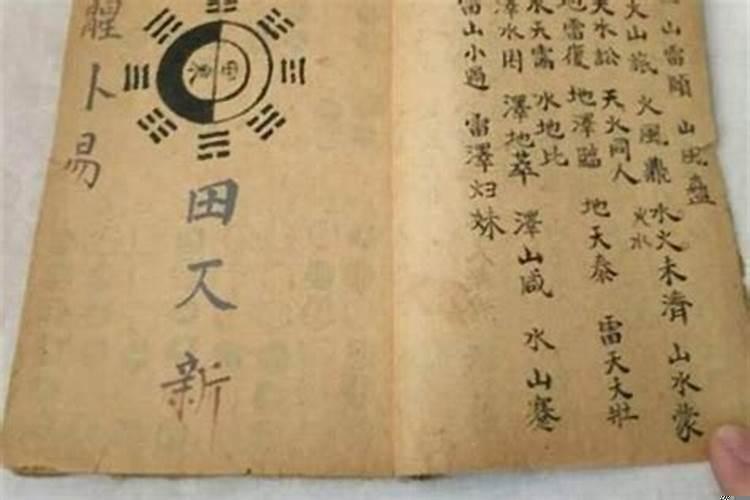 山雷頤
山風蠱
火山旅
火風鼎
水火未濟
火水
山水蒙
天水訟
天火同人
地雷復
地澤臨
地天泰
雷天大壯
水天需
水地比
澤水困
澤地萃
澤山咸
水山蹇
雷山小過
雷澤归妹
卜易
田
新